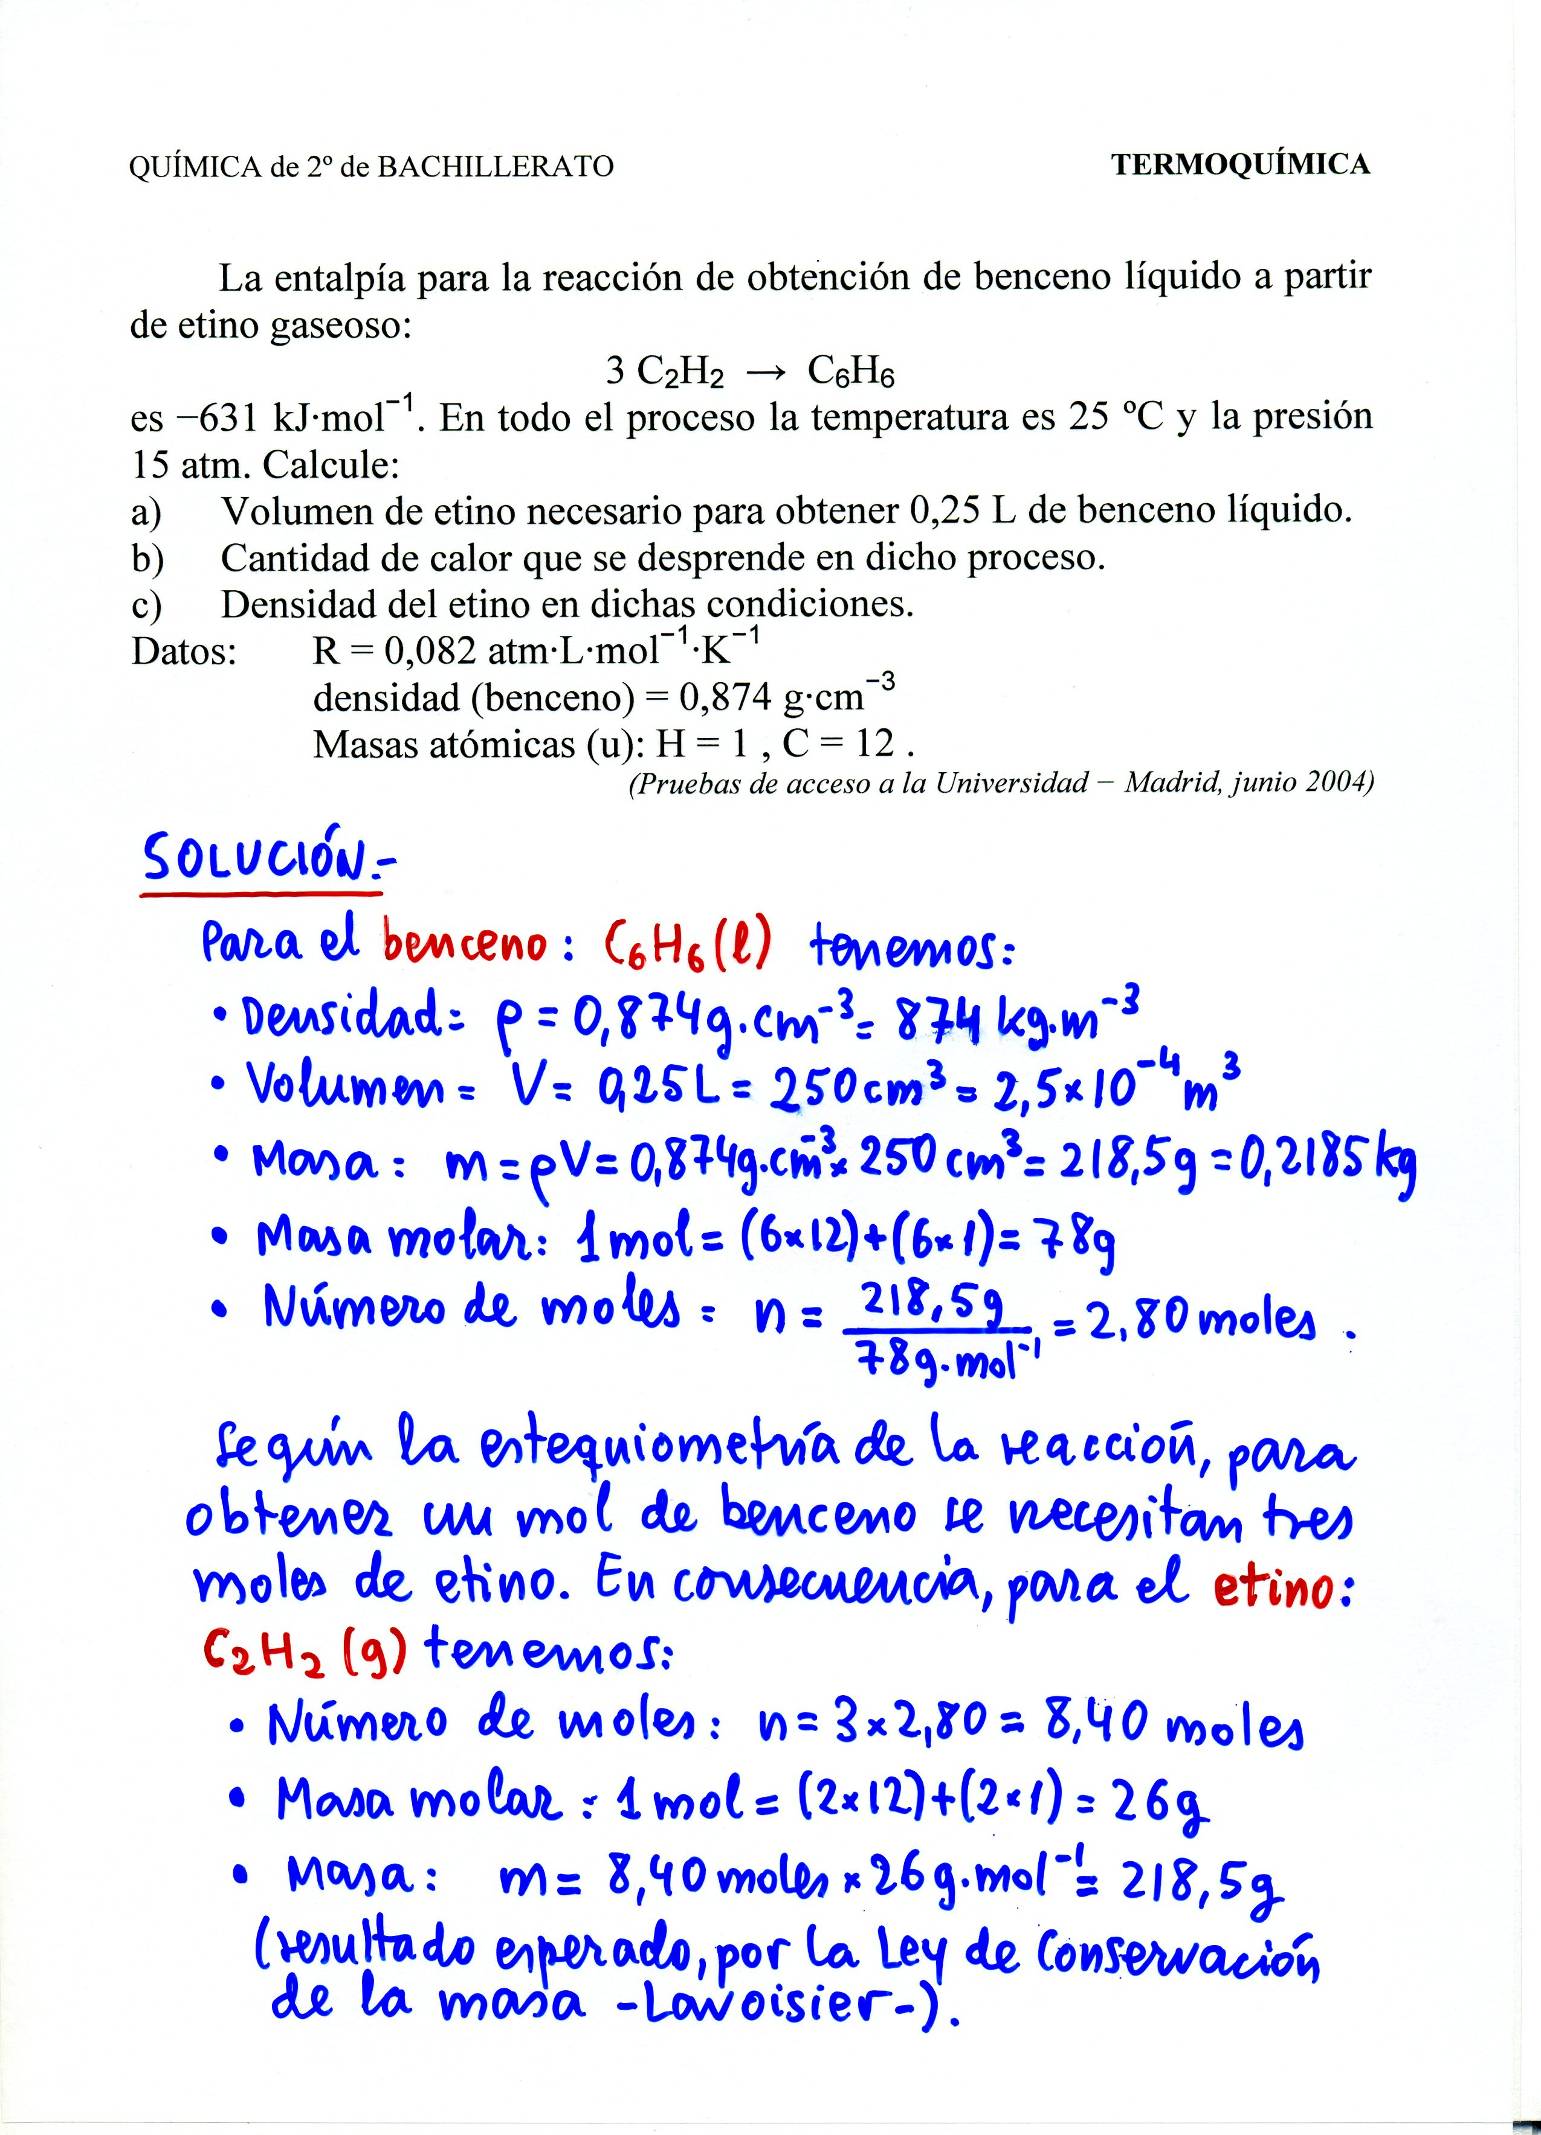 QUÍMICA de 2º de BACHILLERATO TERMOQUÍMICA
La entalpía para la reacción de obtención de benceno líquido a partir
de etino gaseoso:
3 C₂H₂ → C₆H₆
es −631 kJ·mol⁻¹. En todo el proceso la temperatura es 25 ºC y la presión
15 atm. Calcule:
a) Volumen de etino necesario para obtener 0,25 L de benceno líquido.
b) Cantidad de calor que se desprende en dicho proceso.
c) Densidad del etino en dichas condiciones.
Datos: R = 0,082 atm·L·mol⁻¹·K⁻¹
densidad (benceno) = 0,874 g·cm⁻³
Masas atómicas (u): H = 1 , C = 12 .
(Pruebas de acceso a la Universidad − Madrid, junio 2004)
SOLUCIÓN.-
Para el benceno: C₆H₆(l) tenemos:
• Densidad: ρ = 0,874g.cm⁻³ = 874 kg.m⁻³
• Volumen = V = 0,25L = 250cm³ = 2,5×10⁻⁴m³
• Masa: m = ρV = 0,874g.cm⁻³× 250 cm³ = 218,5g = 0,2185 kg
• Masa molar: 1 mol = (6×12)+(6×1) = 78g
• Número de moles: n = 218,5g / 78g.mol⁻¹ = 2,80 moles .
Según la estequiometría de la reacción, para
obtener un mol de benceno se necesitan tres
moles de etino. En consecuencia, para el etino:
C₂H₂ (g) tenemos:
• Número de moles: n = 3×2,80 = 8,40 moles
• Masa molar: 1 mol = (2×12)+(2×1) = 26g
• Masa: m = 8,40 moles × 26 g.mol⁻¹ = 218,5g
(resultado esperado, por la Ley de Conservación
de la masa -Lavoisier-).